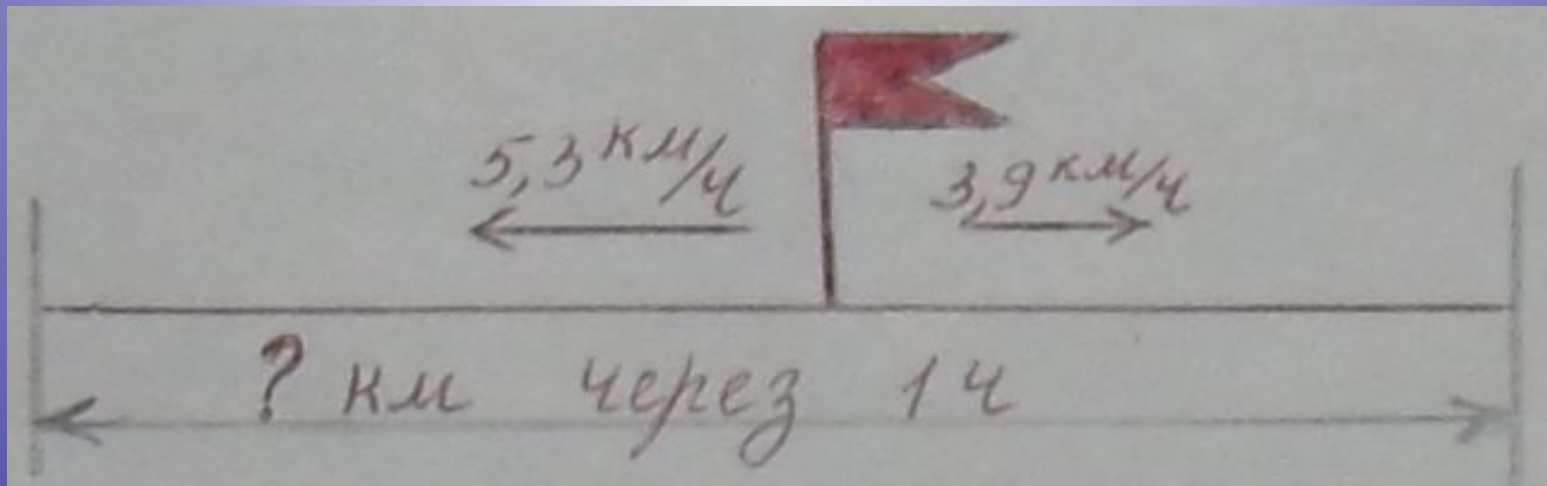 5,3 км/ч
3,9 км/ч
? км через 1 ч